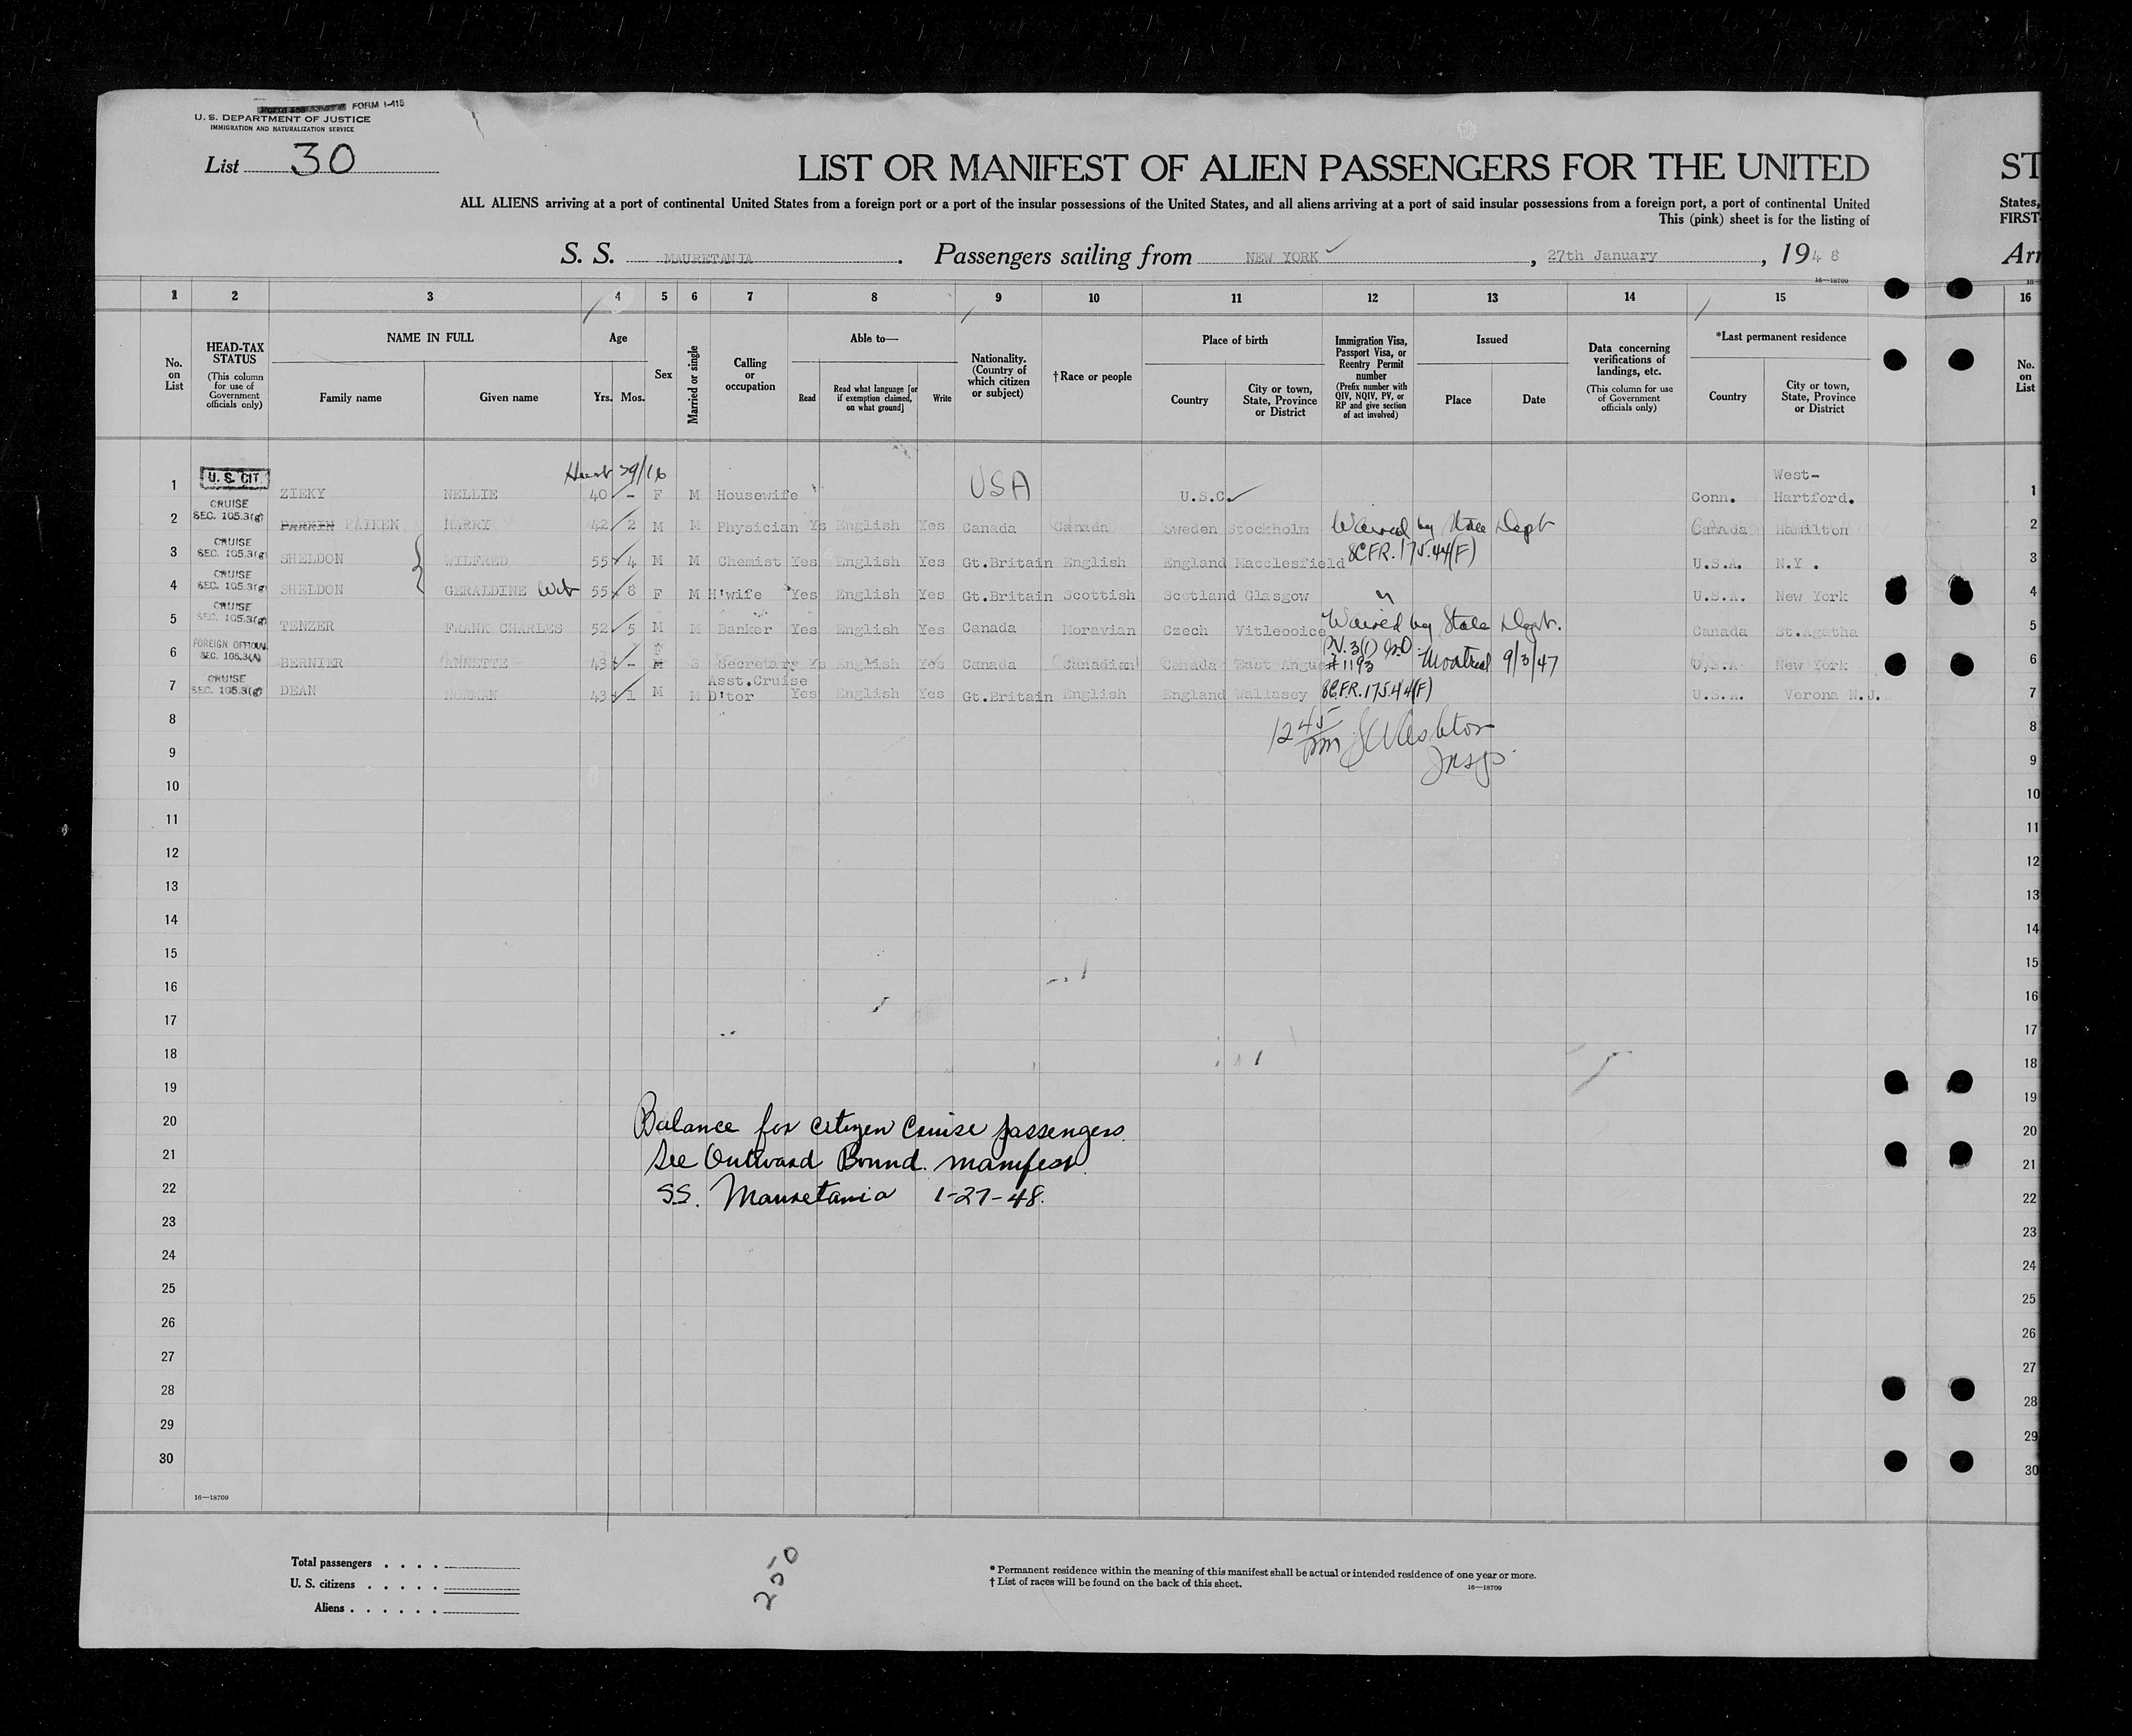 FORM I-415
U. S. DEPARTMENT OF JUSTICE
IMMIGRATION AND NATURALIZATION SERVICE
List 30
LIST OR MANIFEST OF ALIEN PASSENGERS FOR THE UNITED
ST
ALL ALIENS arriving at a port of continental United States from a foreign port or a port of the insular possessions of the United States, and all aliens arriving at a port of said insular possessions from a foreign port, a port of continental United
States,
This (pink) sheet is for the listing of
FIRST-
S. S. MAURETANIA. Passengers sailing from NEW YORK ✓, 27th January, 1948
Arr
16—18709
1 2 3 4 5 6 7 8 9 10 11 12 13 14 15 16
No. on List
HEAD-TAX STATUS (This column for use of Government officials only)
NAME IN FULL
Family name
Given name
Age
Yrs. Mos.
Sex
Married or single
Calling or occupation
Able to—
Read
Read what language [or if exemption claimed, on what ground]
Write
Nationality. (Country of which citizen or subject)
†Race or people
Place of birth
Country
City or town, State, Province or District
Immigration Visa, Passport Visa, or Reentry Permit number (Prefix number with QIV, NQIV, PV, or RP and give section of act involved)
Issued
Place
Date
Data concerning verifications of landings, etc. (This column for use of Government officials only)
*Last permanent residence
Country
City or town, State, Province or District
No. on List
1 U. S. CIT. ZIEKY NELLIE 40 - F M Housewife USA U.S.C. ✓ Conn. West-Hartford. 1
2 CRUISE SEC. 105.3(g) PARKIN PAIKEN HARRY 42 2 M M Physician Ys English Yes Canada Canada Sweden Stockholm Waived by State Dept Canada Hamilton 2
3 CRUISE SEC. 105.3(g) SHELDON WILFRED 55 4 M M Chemist Yes English Yes Gt.Britain English England Macclesfield 8CFR.175.44(F) U.S.A. N.Y. 3
4 CRUISE SEC. 105.3(g) SHELDON GERALDINE 55 8 F M H'wife Yes English Yes Gt.Britain Scottish Scotland Glasgow " U.S.A. New York 4
5 CRUISE SEC. 105.3(g) TENZER FRANK CHARLES 52 5 M M Banker Yes English Yes Canada Moravian Czech Waived by State Dept. Canada St.Agatha 5
6 FOREIGN OFFICIAL SEC. 105.3(A) BERNIER ANNETTE 43 - F M S Secretary Ys English Yes Canada Canadian Canada East Angus PV. 3(1) #1193 Montreal 9/3/47 U.S.A New York 6
7 CRUISE SEC. 105.3(g) DEAN NORMAN 43 1 M M Asst.Cruise D'tor Yes English Yes Gt.Britain English England Wallasey 8CFR.175.44(F) U.S.A. Verona N.J. 7
8 8
9 1245 pm Insp. 9
10 10
11 11
12 12
13 13
14 14
15 15
16 16
17 17
18 18
19 19
20 Balance for citizen Cruise passengers 20
21 See Outward Bound. manifest 21
22 SS. Mauretania 1-27-48. 22
23 23
24 24
25 25
26 26
27 27
28 28
29 29
30 30
16—18709
Total passengers . . . .
U. S. citizens . . . . .
Aliens . . . . . .
* Permanent residence within the meaning of this manifest shall be actual or intended residence of one year or more.
† List of races will be found on the back of this sheet.
16—18709